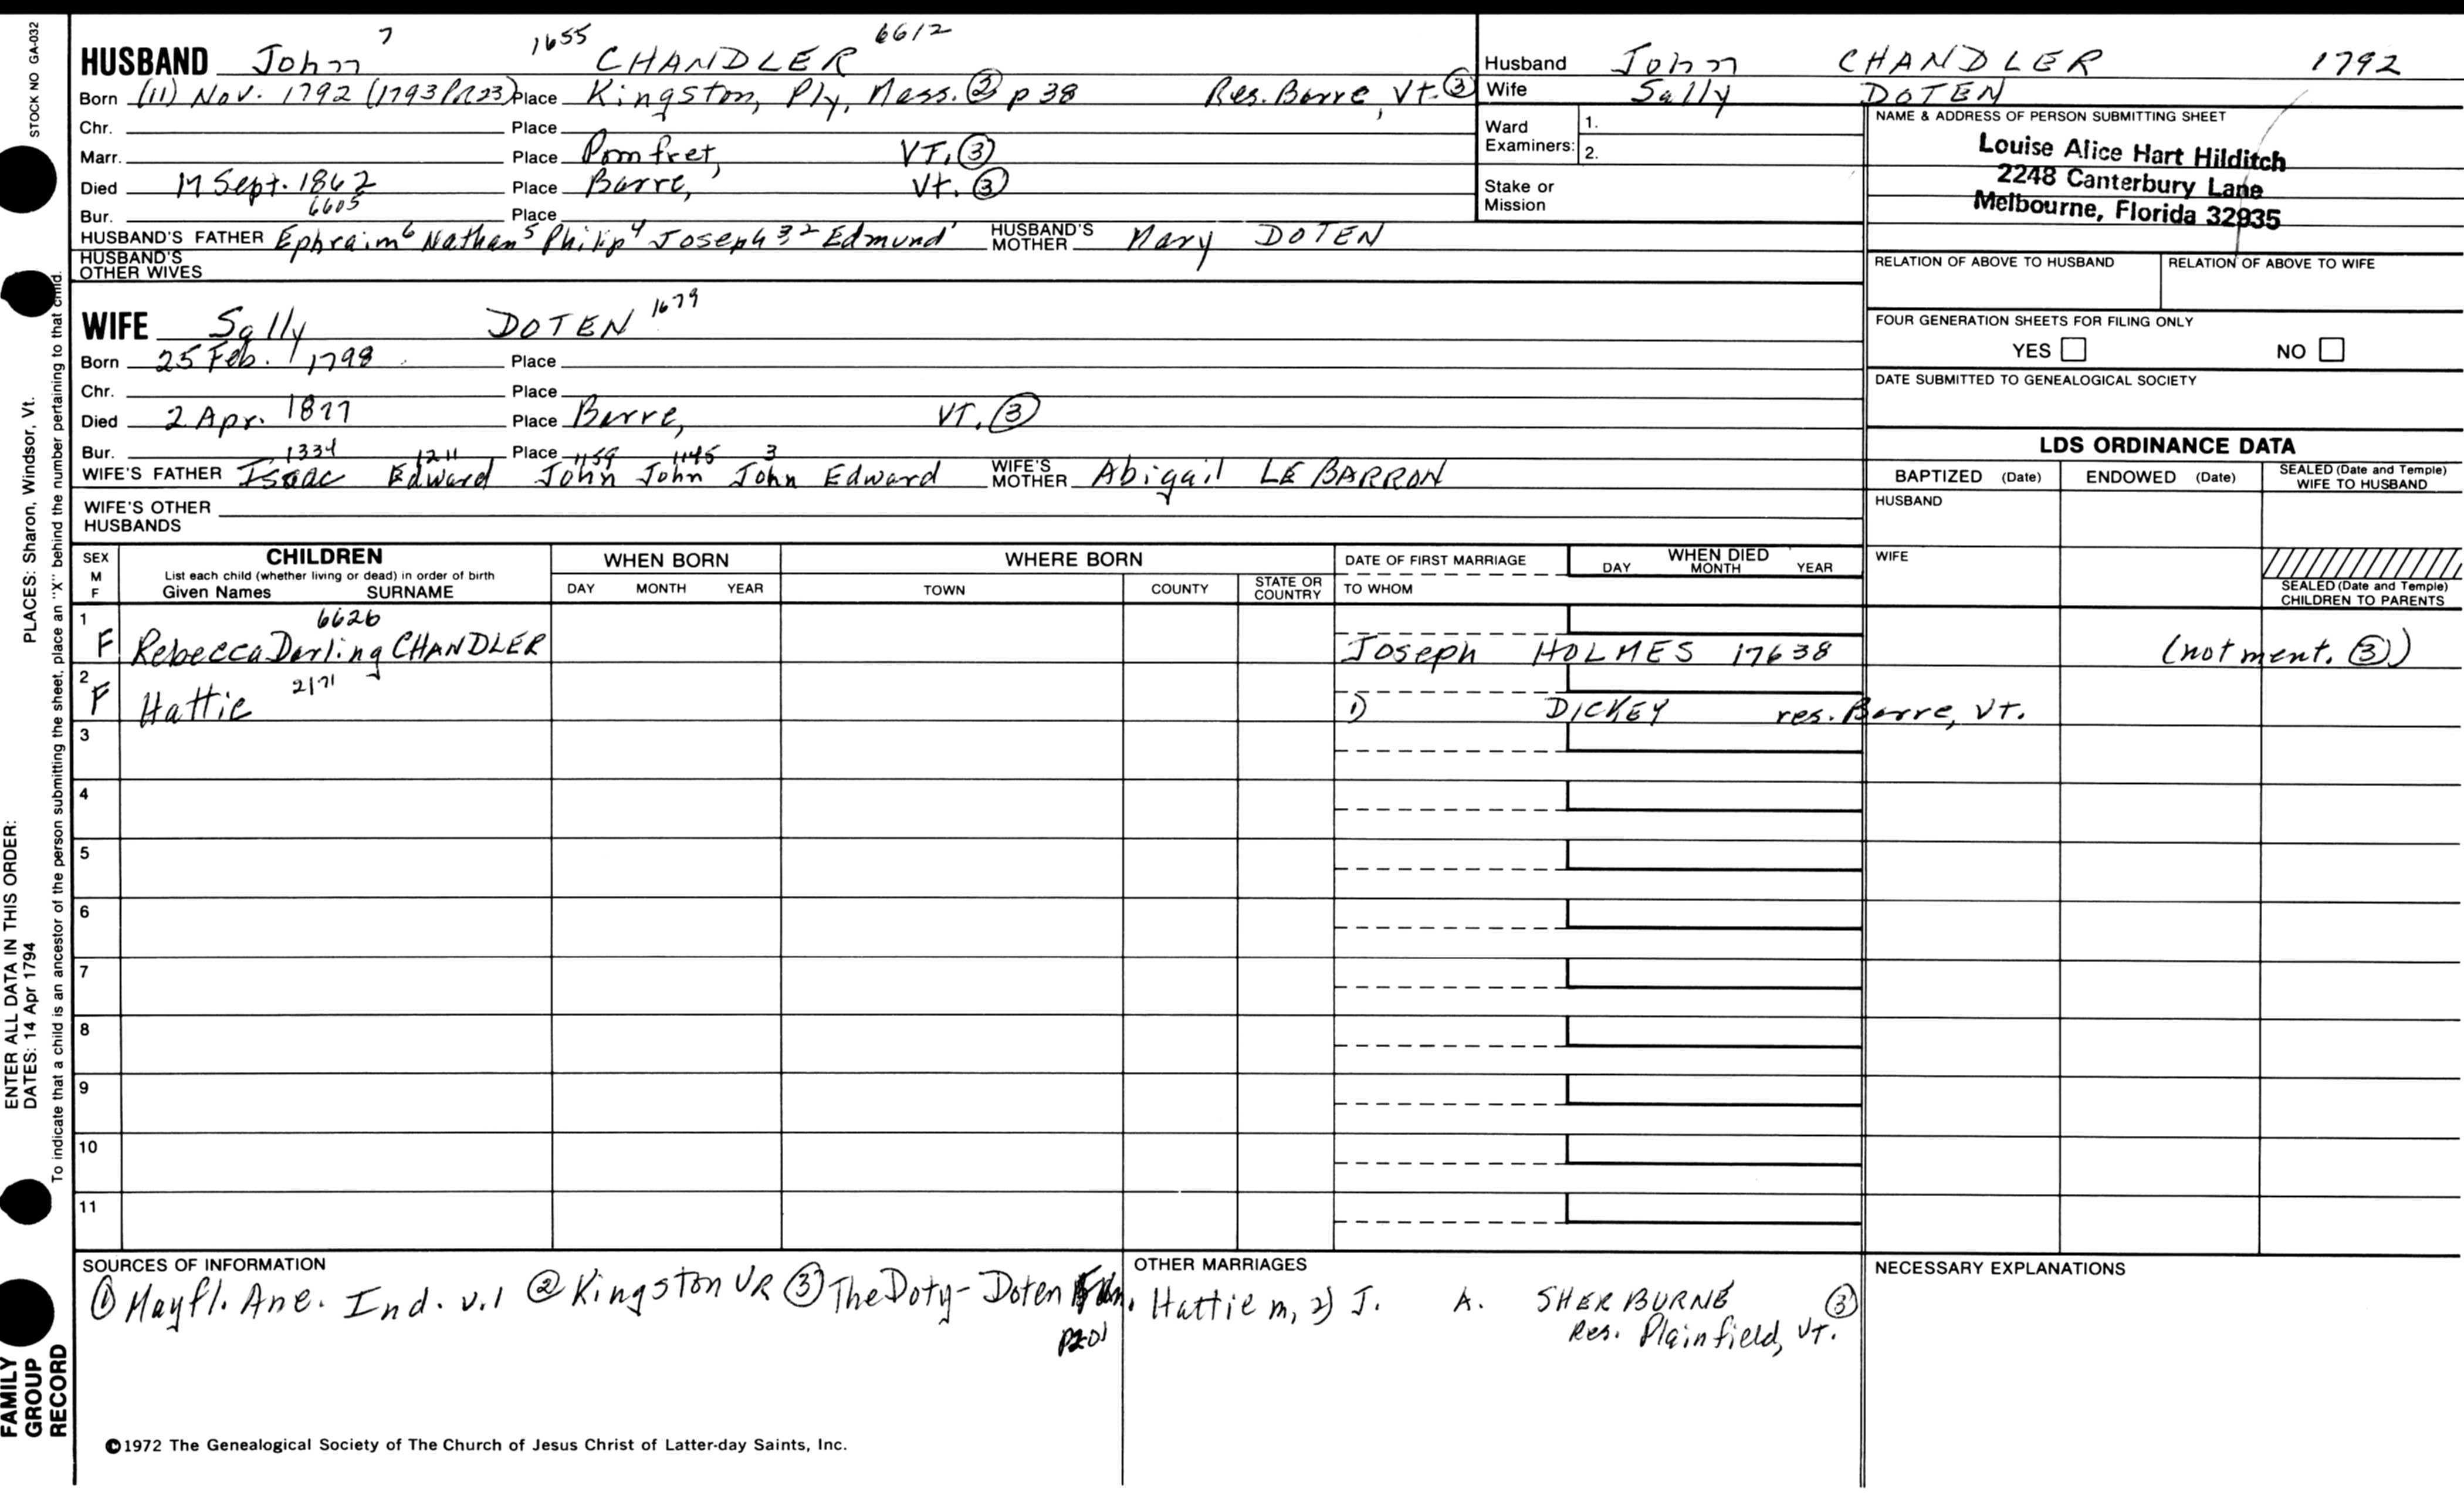 STOCK NO GA-032
PLACES: Sharon, Windsor, Vt.
ENTER ALL DATA IN THIS ORDER:
DATES: 14 Apr 1794
To indicate that a child is an ancestor of the person submitting the sheet, place an "X" behind the number pertaining to that child.
FAMILY
GROUP
RECORD
HUSBAND John 7 1655 CHANDLER 6612
Born (11) Nov. 1792 (1793 PR23) Place Kingston, Ply, Mass. ② p 38 Res. Barre, Vt. ③
Chr. Place
Marr. Place Pomfret, VT. ③
Died 17 Sept. 1862 Place Barre, Vt. ③
Bur. 6605 Place
HUSBAND'S FATHER Ephraim 6 Nathan 5 Philip 4 Joseph 3 2 Edmund 1 HUSBAND'S MOTHER Mary DOTEN
HUSBAND'S
OTHER WIVES
Husband John CHANDLER 1792
Wife Sally DOTEN
Ward
Examiners: 1.
2.
Stake or
Mission
NAME & ADDRESS OF PERSON SUBMITTING SHEET
Louise Alice Hart Hilditch
2248 Canterbury Lane
Melbourne, Florida 32935
RELATION OF ABOVE TO HUSBAND RELATION OF ABOVE TO WIFE
FOUR GENERATION SHEETS FOR FILING ONLY
YES NO
DATE SUBMITTED TO GENEALOGICAL SOCIETY
WIFE Sally DOTEN 1679
Born 25 Feb. 1798 Place
Chr. Place
Died 2 Apr. 1877 Place Barre, VT. ③
Bur. 1334 1211 Place 1159 1145 3
WIFE'S FATHER Isaac Edward John John John Edward WIFE'S MOTHER Abigail LE BARRON
WIFE'S OTHER
HUSBANDS
LDS ORDINANCE DATA
BAPTIZED (Date) ENDOWED (Date) SEALED (Date and Temple) WIFE TO HUSBAND
HUSBAND
WIFE
SEALED (Date and Temple)
CHILDREN TO PARENTS
SEX M F
CHILDREN
List each child (whether living or dead) in order of birth
Given Names SURNAME
WHEN BORN
DAY MONTH YEAR
WHERE BORN
TOWN COUNTY STATE OR COUNTRY
DATE OF FIRST MARRIAGE
TO WHOM
WHEN DIED
DAY MONTH YEAR
1 6626
F Rebecca Darling CHANDLER Joseph HOLMES 17638 (not ment. ③)
2 2171
F Hattie 1) DICKEY res. Barre, Vt.
3
4
5
6
7
8
9
10
11
SOURCES OF INFORMATION
① Mayfl. Anc. Ind. v.1 ② Kingston VR ③ The Doty-Doten Fam.
p201
OTHER MARRIAGES
Hattie m, 2) J. A. SHERBURNE ③
Res. Plainfield, VT.
NECESSARY EXPLANATIONS
©1972 The Genealogical Society of The Church of Jesus Christ of Latter-day Saints, Inc.